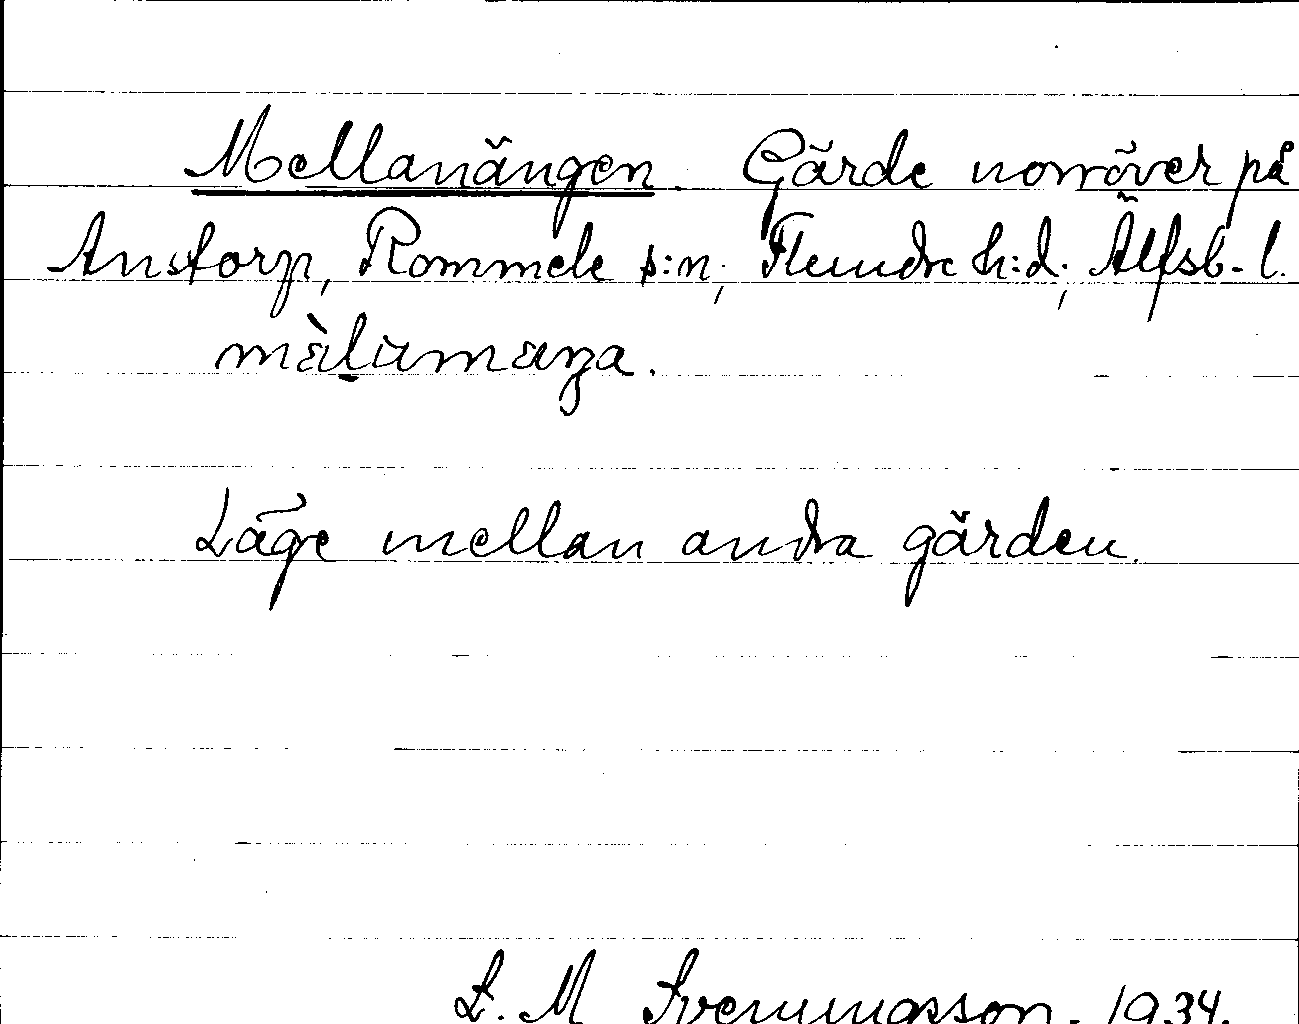 Mellanängen. Gärde norröver på
Anstorp, Rommele s:n; Flundre h:d; Älfsb. l.
Läge mellan andra gärden.
S. M Svenningsson. 1934.